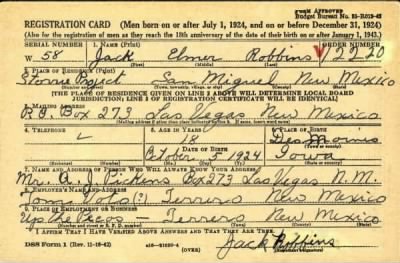 FORM APPROVED
Budget Bureau No. 33-R012-42
REGISTRATION CARD (Men born on or after July 1, 1924, and on or before December 31, 1924)
(Also for the registration of men as they reach the 18th anniversary of the date of their birth on or after January 1, 1943.)
SERIAL NUMBER 1. NAME (Print) ORDER NUMBER
W 58 Jack Elmer Robbins 12220
2. PLACE OF RESIDENCE (Print)
Storrie Project San Miguel New Mexico
[THE PLACE OF RESIDENCE GIVEN ON LINE 2 ABOVE WILL DETERMINE LOCAL BOARD
JURISDICTION; LINE 2 OF REGISTRATION CERTIFICATE WILL BE IDENTICAL]
3. MAILING ADDRESS
P.O. Box 273 Las Vegas New Mexico
[Mailing address if other than place indicated on line 2. If same, insert word same]
4. TELEPHONE 5. AGE IN YEARS 6. PLACE OF BIRTH
18 Des Moines
DATE OF BIRTH
October 5 1924 Iowa
7. NAME AND ADDRESS OF PERSON WHO WILL ALWAYS KNOW YOUR ADDRESS
Mr. A. J. Pickens Box 273 Las Vegas N.M.
8. EMPLOYER'S NAME AND ADDRESS
Tom (?) Terrero New Mexico
9. PLACE OF EMPLOYMENT OR BUSINESS
Up the Pecos — Terrero New Mexico
I AFFIRM THAT I HAVE VERIFIED ABOVE ANSWERS AND THAT THEY ARE TRUE.
DSS Form 1 (Rev. 11-16-42) (OVER) Jack Robbins